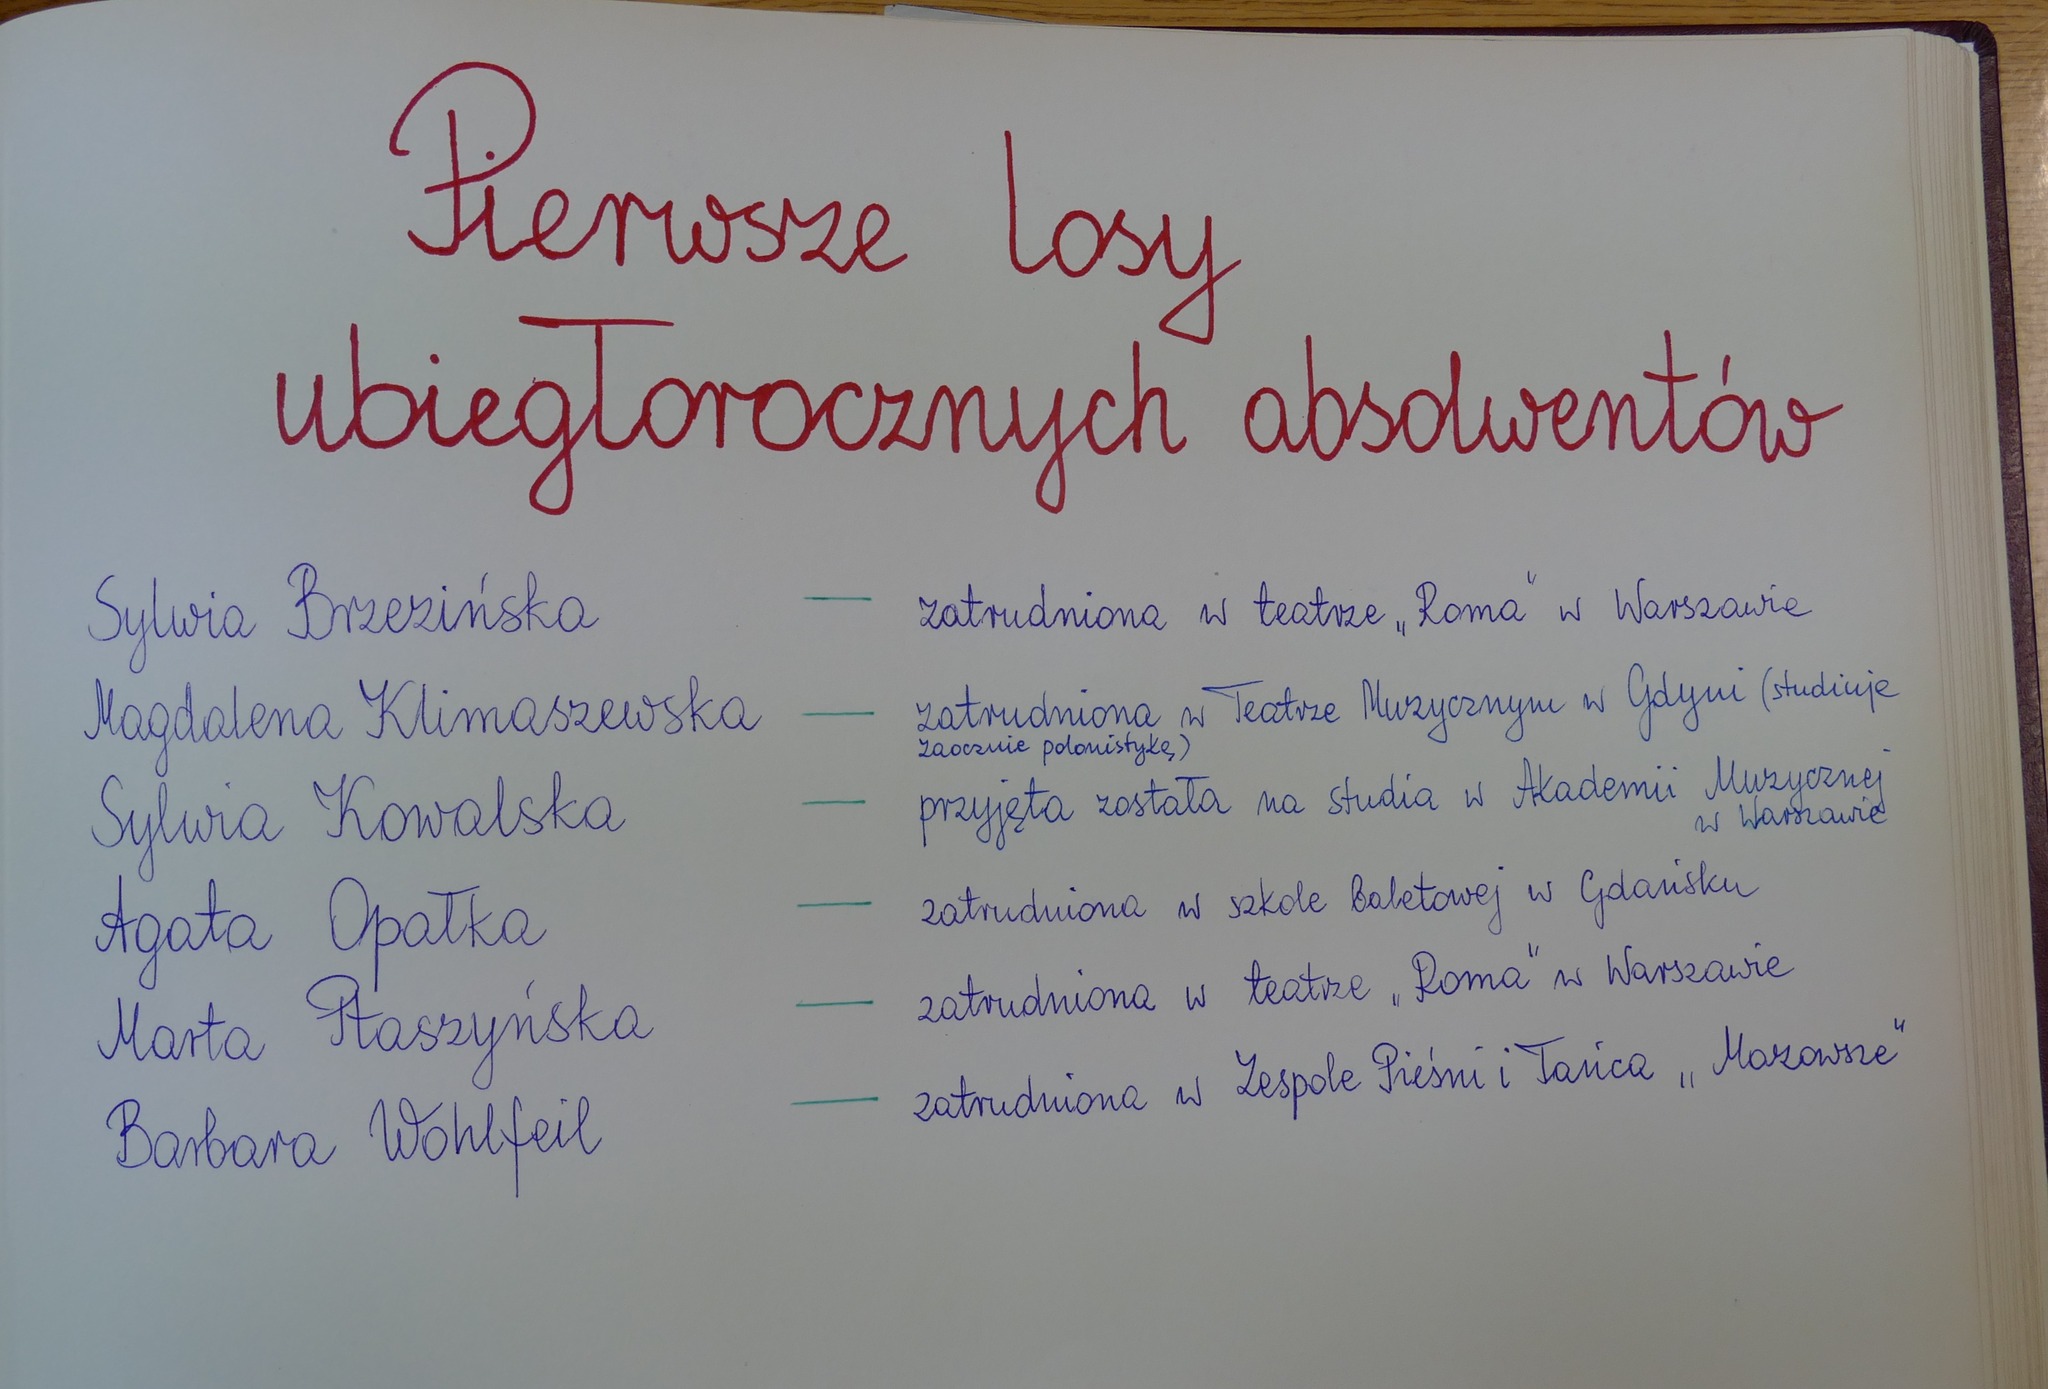 Pierwsze losy
ubiegłorocznych absolwentów
Sylwia Brzezińska — zatrudniona w teatrze „Roma” w Warszawie
Magdalena Klimaszewska — zatrudniona w Teatrze Muzycznym w Gdyni (studiuje
zaocznie polonistykę)
Sylwia Kowalska — przyjęta została na studia w Akademii Muzycznej
w Warszawie
Agata Opałka — zatrudniona w szkole baletowej w Gdańsku
Marta Ptaszyńska — zatrudniona w teatrze „Roma” w Warszawie
Barbara Wohlfeil — zatrudniona w Zespole Pieśni i Tańca „Mazowsze”